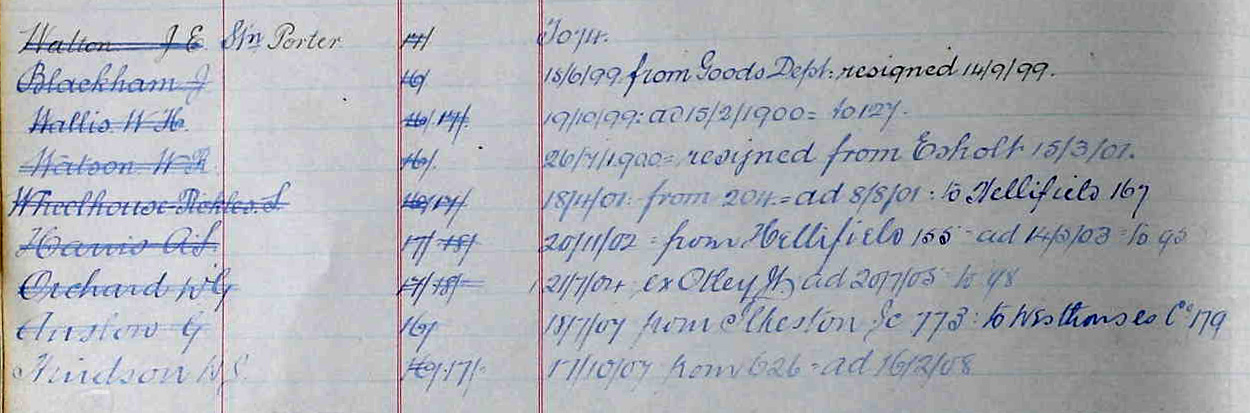 Walton J E Stn Porter 17/ To 74.
Blackham J 16/ 15/6/99 from Goods Dept: resigned 14/9/99.
Wallis W H. 16/ 17/. 19/10/99: ad 15/2/1900 = to 127.
Watson W R. 16/. 26/7/1900 = resigned from Esholt 15/3/01.
Wheelhouse Pickles. S 16/ 17/ 18/4/01: from 204. = ad 8/8/01: to Hellifield 167
Harris A.S. 17/ 18/ 20/11/02 = from Hellifield 155 = ad 14/5/03 = to 95
Orchard W G 17/ 18/ 21/7/04 ex Otley Jt ad 20/7/05 to 98
Anslow G 16/ 18/7/07 from Ilkeston Jc 773: to Westhouses Co 179
Hindson W. S. 16/ 17/. 17/10/07 from 626 = ad 16/2/08